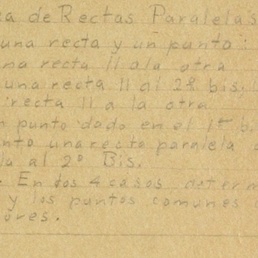 a de Rectas Paralelas
una recta y un punto:
na recta II a la otra
una recta II al 2º bis.
recta II a la otra
n punto dado en el 1er b
nto una recta paralela
la al 2º Bis.
. En dos 4 casos, determ
y los puntos comunes
ores.